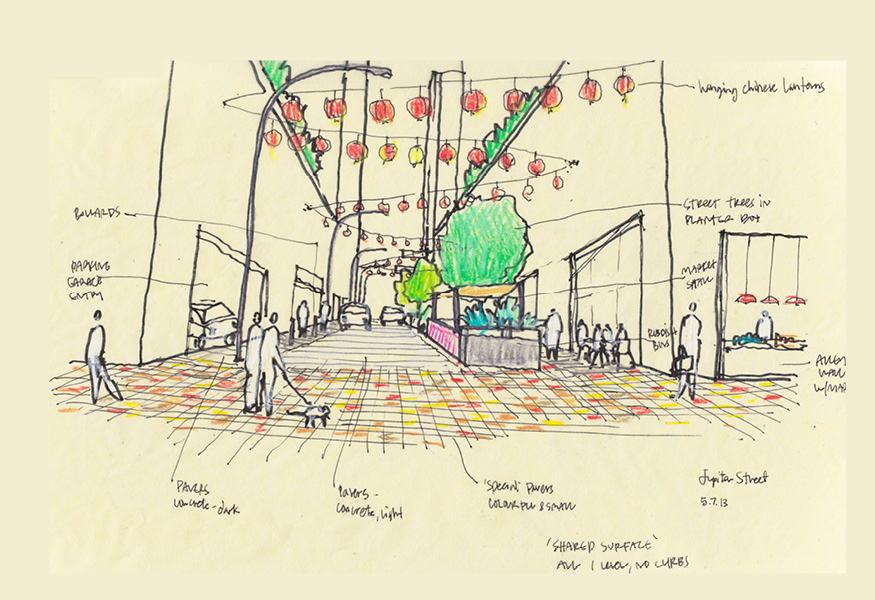 hanging chinese lanterns
BOLLARDS
STREET TREES IN
PLANTER BOX
PARKING
GARAGE
ENTRY
MARKET
STALL
RUBBISH
BINS
ALLEY
WALL
PAVERS
concrete - dark
Pavers -
concrete, light
'Special' Pavers
COLOURFUL & SMALL
Jupiter Street
5.7.13
'SHARED SURFACE'
ALL 1 LEVEL, NO CURBS